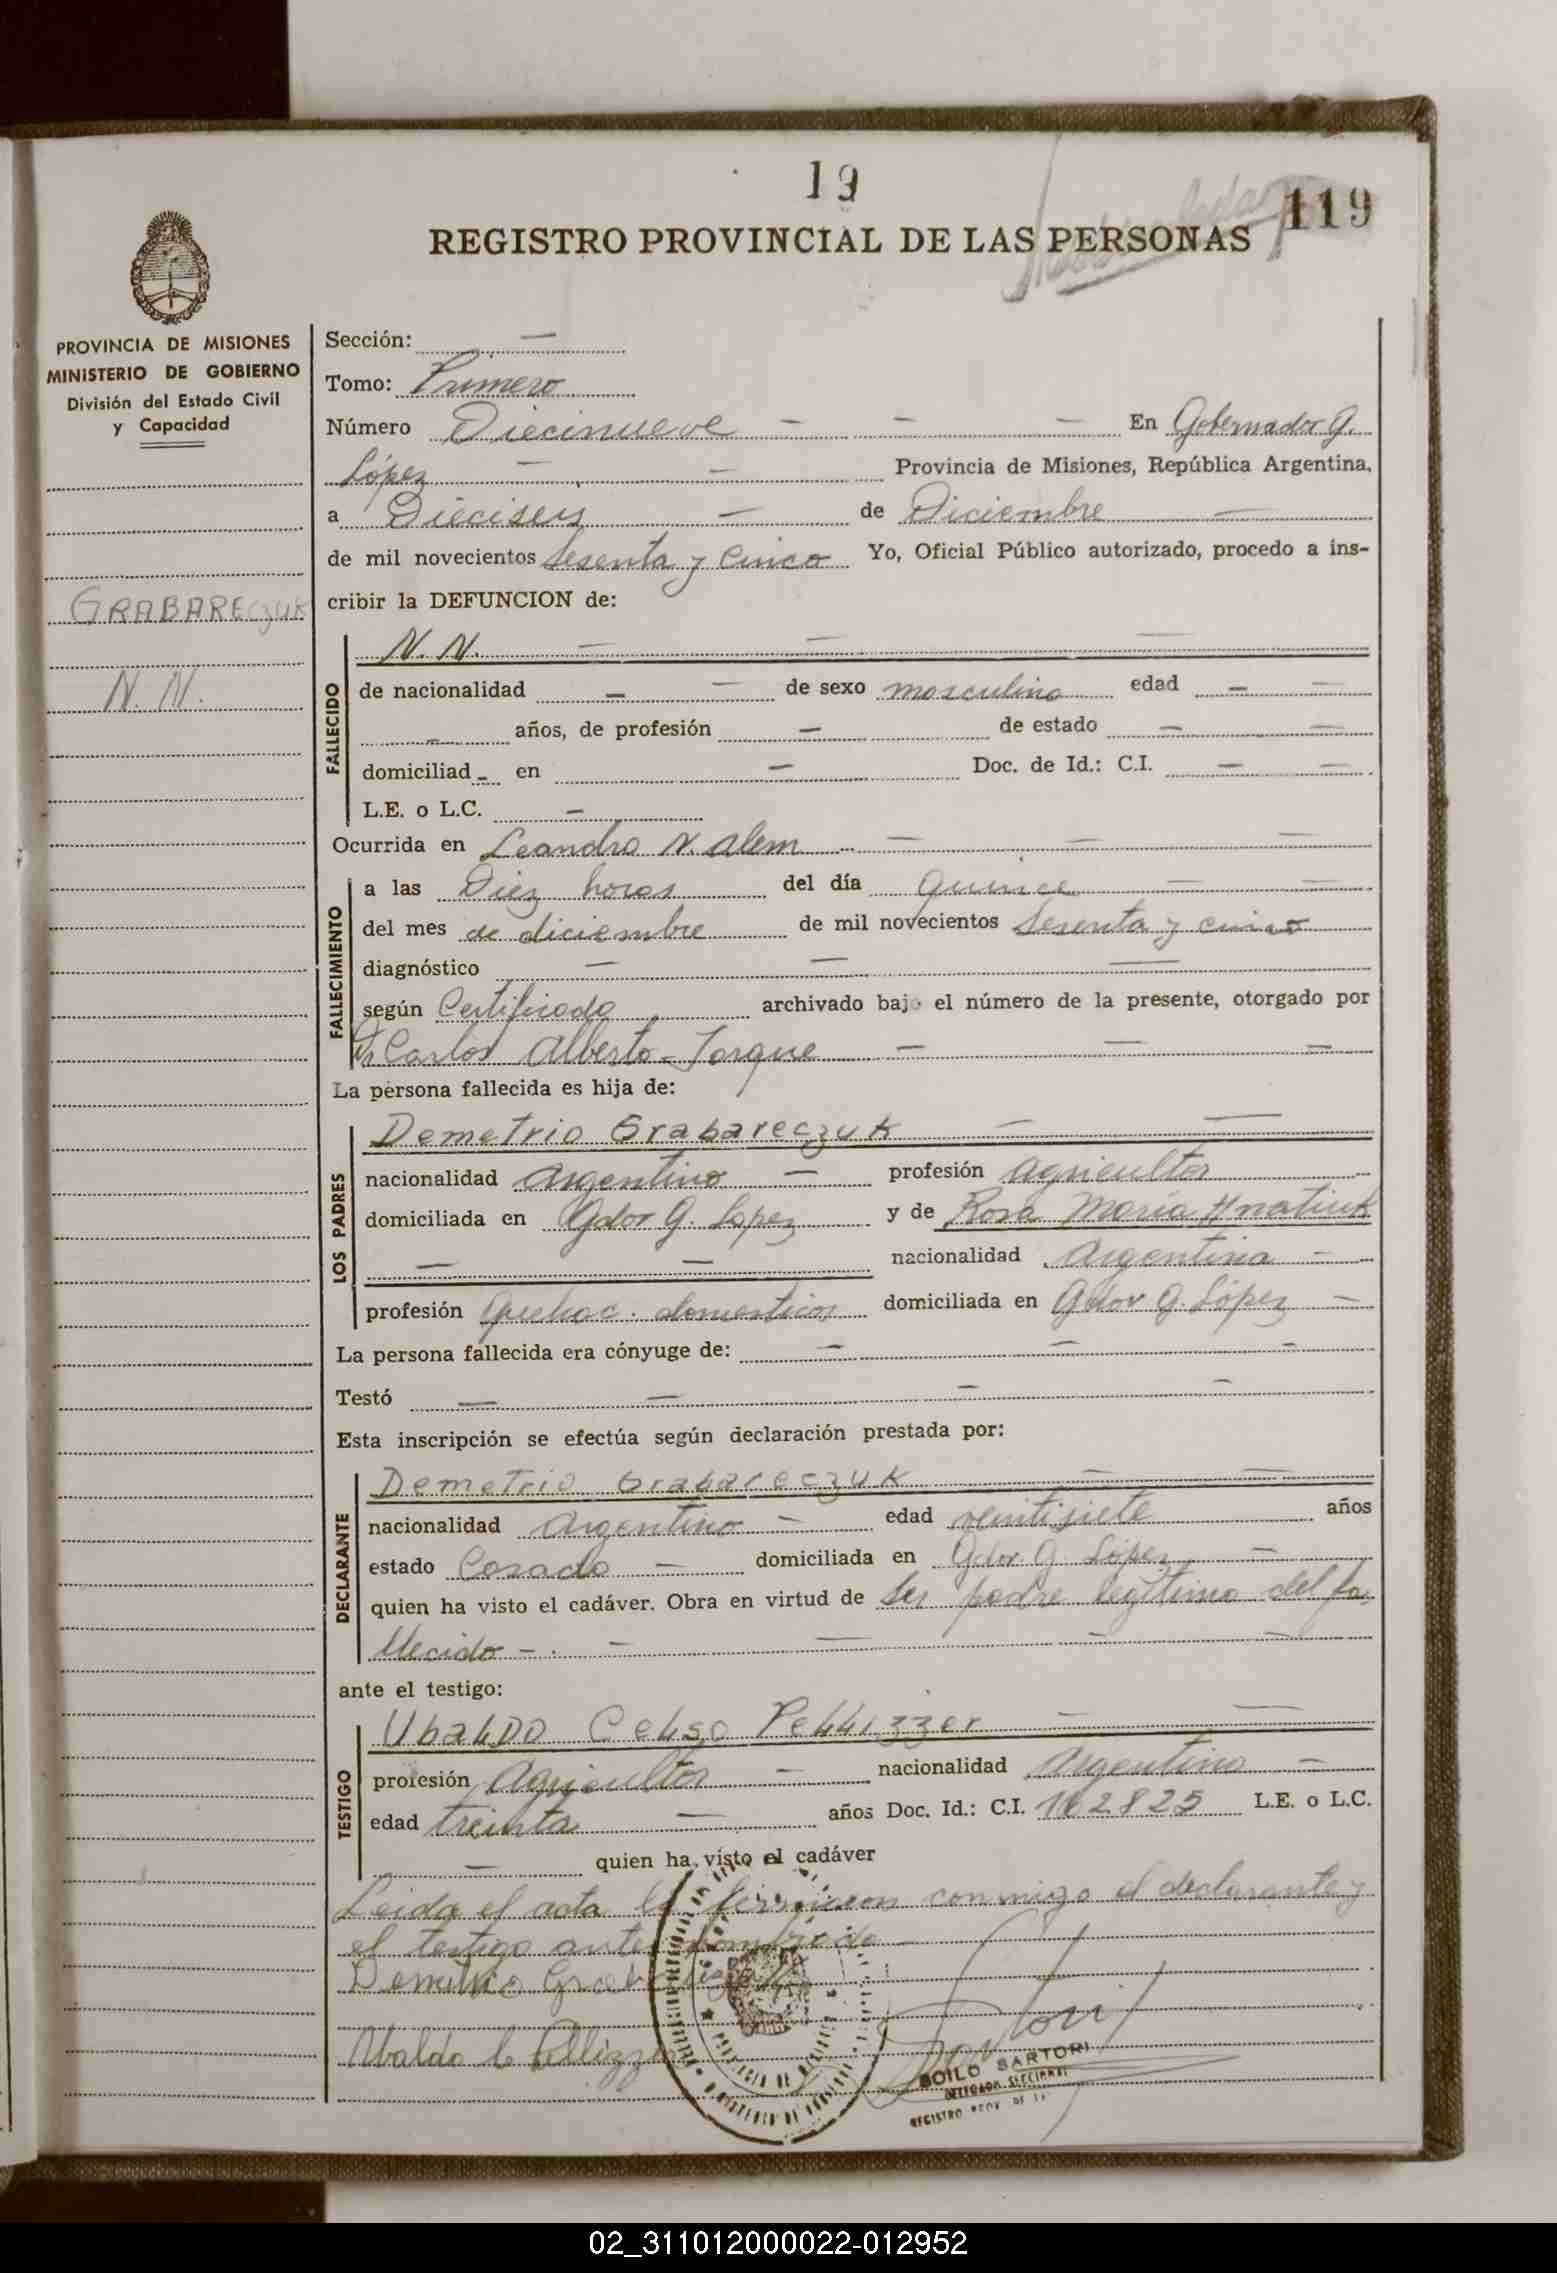 19
119
REGISTRO PROVINCIAL DE LAS PERSONAS
PROVINCIA DE MISIONES
MINISTERIO DE GOBIERNO
División del Estado Civil
y Capacidad
GRABARECZUK
N. N.
Sección: —
Tomo: Primero
Número Diecinueve — — — En Gobernador G.
López — — Provincia de Misiones, República Argentina,
a Dieciseis — de Diciembre —
de mil novecientos Sesenta y Cinco Yo, Oficial Público autorizado, procedo a ins-
cribir la DEFUNCION de:
FALLECIDO
N. N. — — —
de nacionalidad — — de sexo masculino edad — —
— años, de profesión — de estado — —
domiciliad - en — Doc. de Id.: C.I. — —
L.E. o L.C. —
Ocurrida en Leandro N. Alem — — — —
FALLECIMIENTO
a las Diez horas del día quince — —
del mes de diciembre de mil novecientos Sesenta y cinco
diagnóstico — — —
según Certificado archivado bajo el número de la presente, otorgado por
Dr Carlos Alberto Jorque — — —
La persona fallecida es hija de:
LOS PADRES
Demetrio Grabareczuk — —
nacionalidad Argentino — profesión agricultor
domiciliada en Gdor G. Lopez y de Rosa Maria Hnatiuk
— — nacionalidad Argentina —
profesión Quehac. domesticos domiciliada en Gdor G. López —
La persona fallecida era cónyuge de: — — —
Testó — — — —
Esta inscripción se efectúa según declaración prestada por:
DECLARANTE
Demetrio Grabareczuk — —
nacionalidad Argentino — edad veintisiete años
estado Casado — domiciliada en Gdor G. López —
quien ha visto el cadáver. Obra en virtud de Ser padre legitimo del fa
llecido — — — — —
ante el testigo:
TESTIGO
Ubaldo Celso Pellizzer — —
profesión Agricultor — nacionalidad Argentino —
edad treinta — años Doc. Id.: C.I. 102825 L.E. o L.C.
— quien ha visto el cadáver
Leida el acta la firmaron conmigo el declarante y
el testigo antes nombrado —
Demetrio
Ubaldo C Pellizzer
Sartori
ZOILO SARTORI
DELEGADO SECCIONAL
REGISTRO PROV. DE
PROVINCIA DE MISIONES
MINISTERIO DE GOBIERNO
02_311012000022-012952